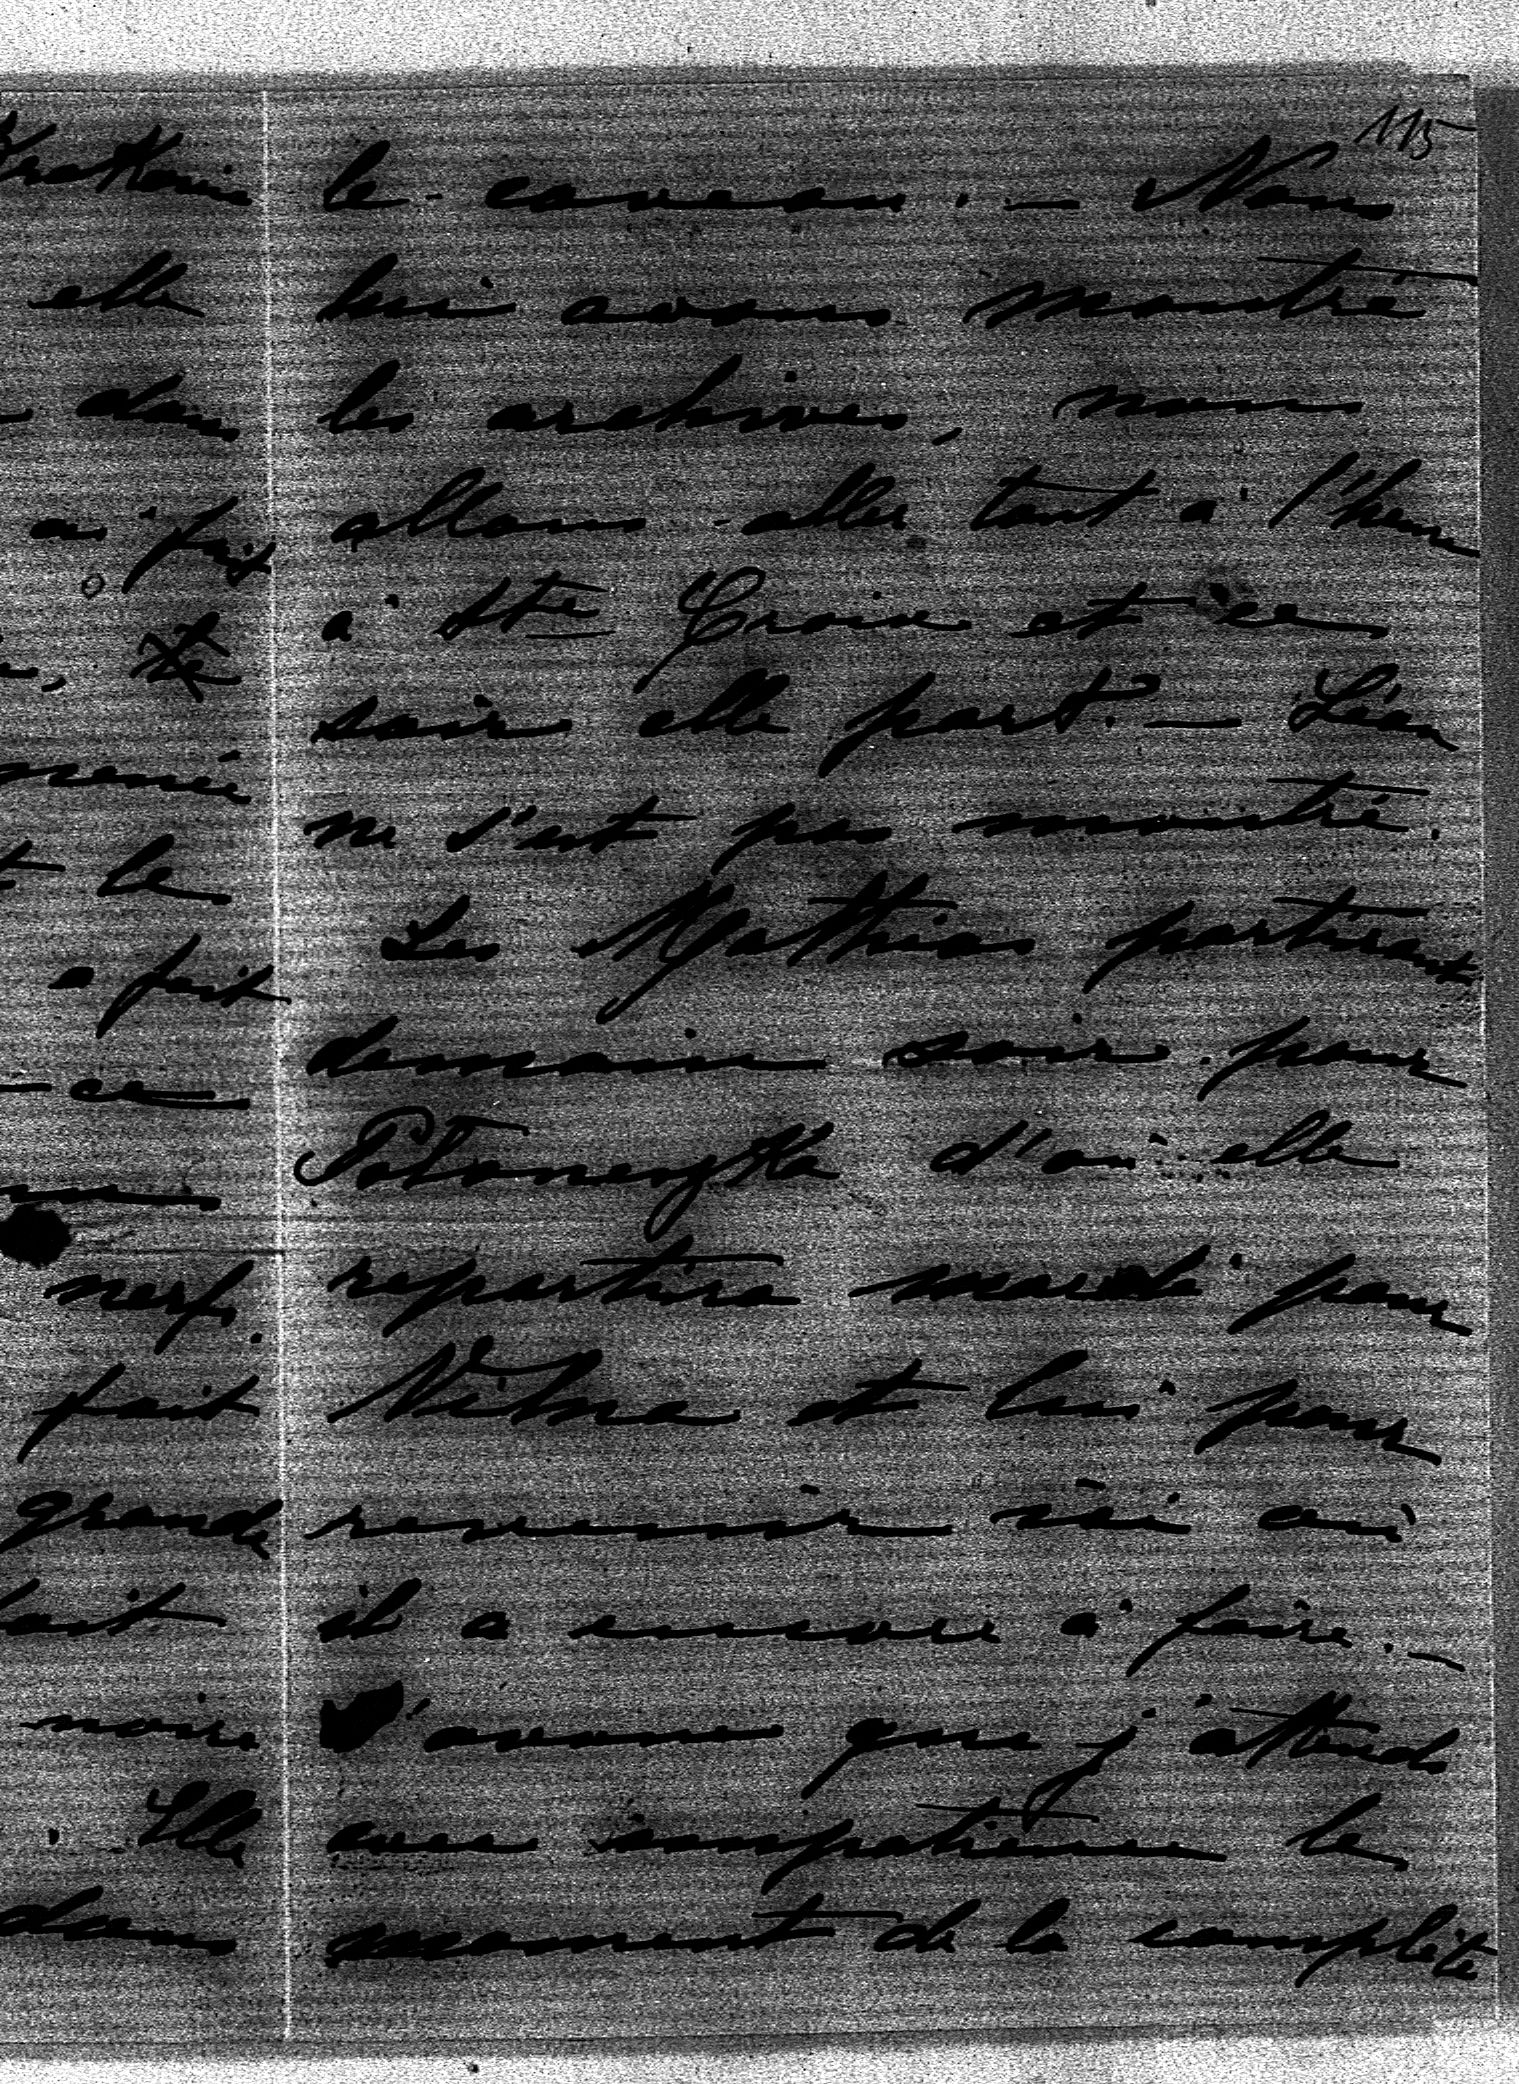 115
le caveau. — Nous
lui avons montré
les archives, nous
allons aller tout à l'heure
à Ste Croix et ce
soir elle part. — Léon
ne s'est pas montré.
Les Mathias partiront
demain soir pour
d'où elle
repartira mardi pour
Vilna et lui pour
revenir ici où
il a encore à faire. —
J'avoue que j'attends
avec impatience le
moment de la complète
elle
dans
ai fait
le
a fait
ce
nerf.
fait
grande
noire
Elle
dans